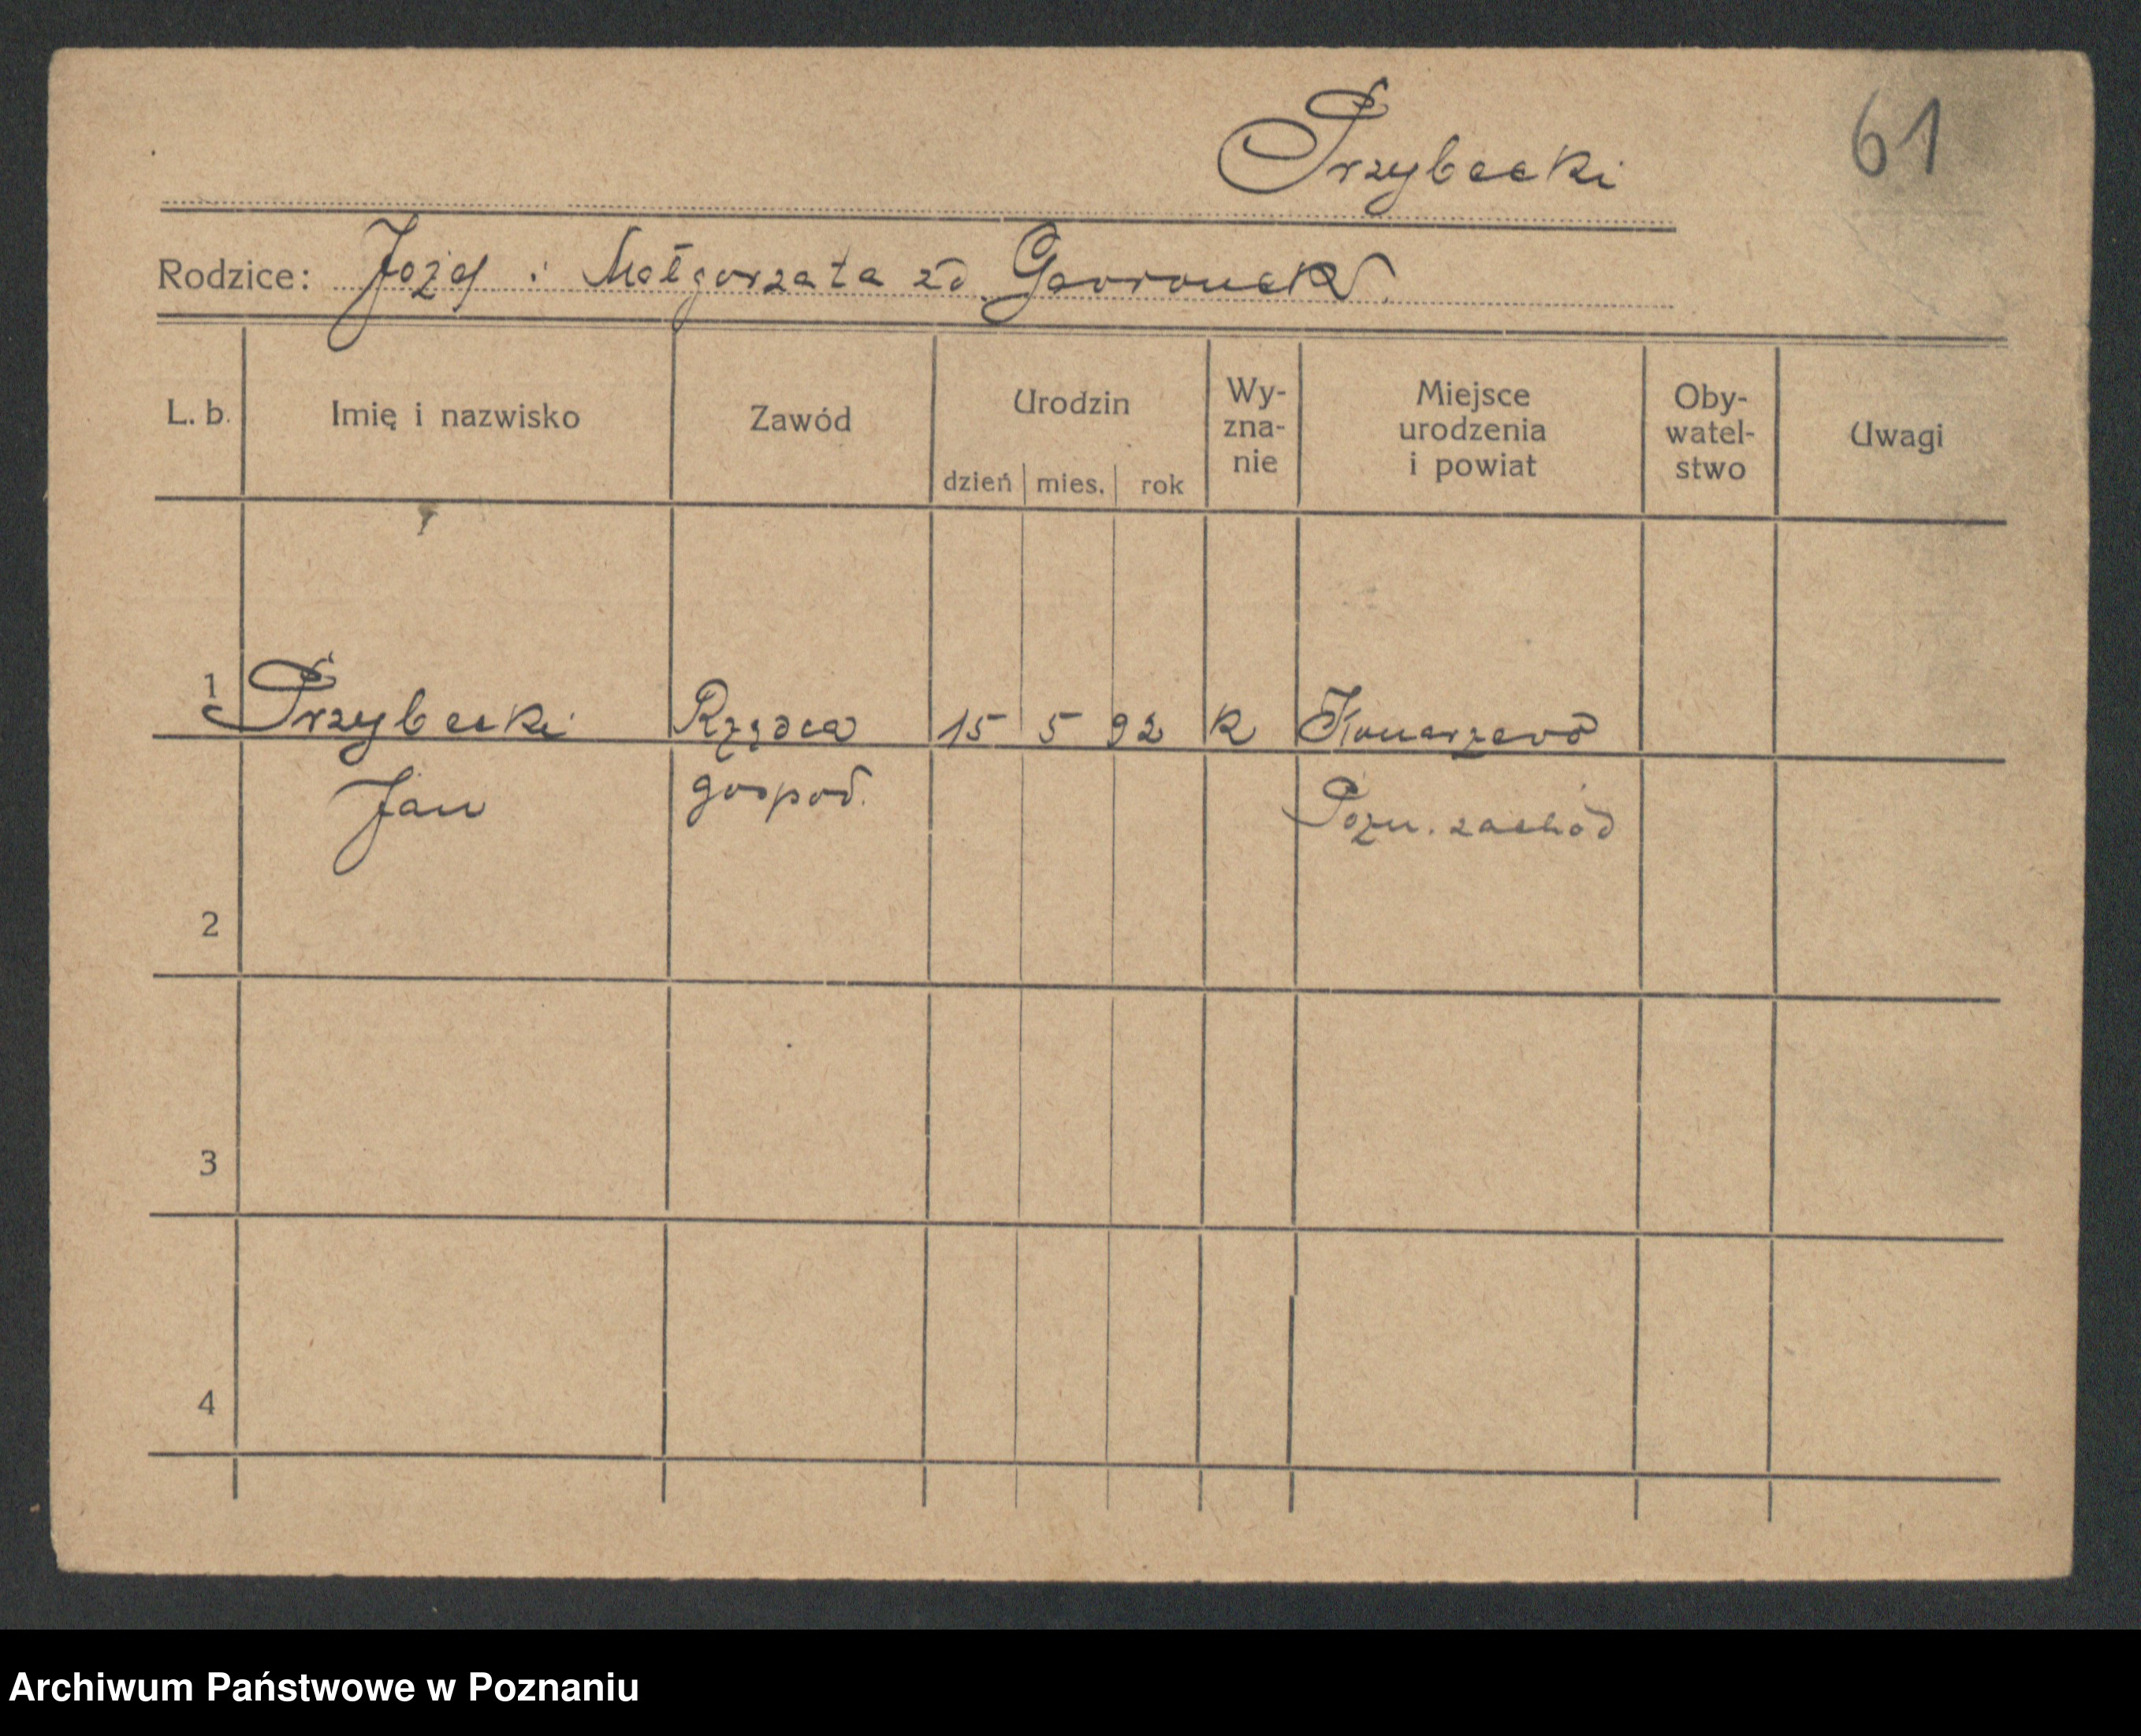 Przybecki
61
Rodzice: Józef i Małgorzata zd.
L. b. Imię i nazwisko Zawód Urodzin Wy- Miejsce Oby- Uwagi
zna- urodzenia watel-
nie i powiat stwo
dzień mies. rok
1 Przybecki Rządca 15 5 92 R Konarzewo
Jan gospod. Pozn. zachód
2
3
4
Archiwum Państwowe w Poznaniu